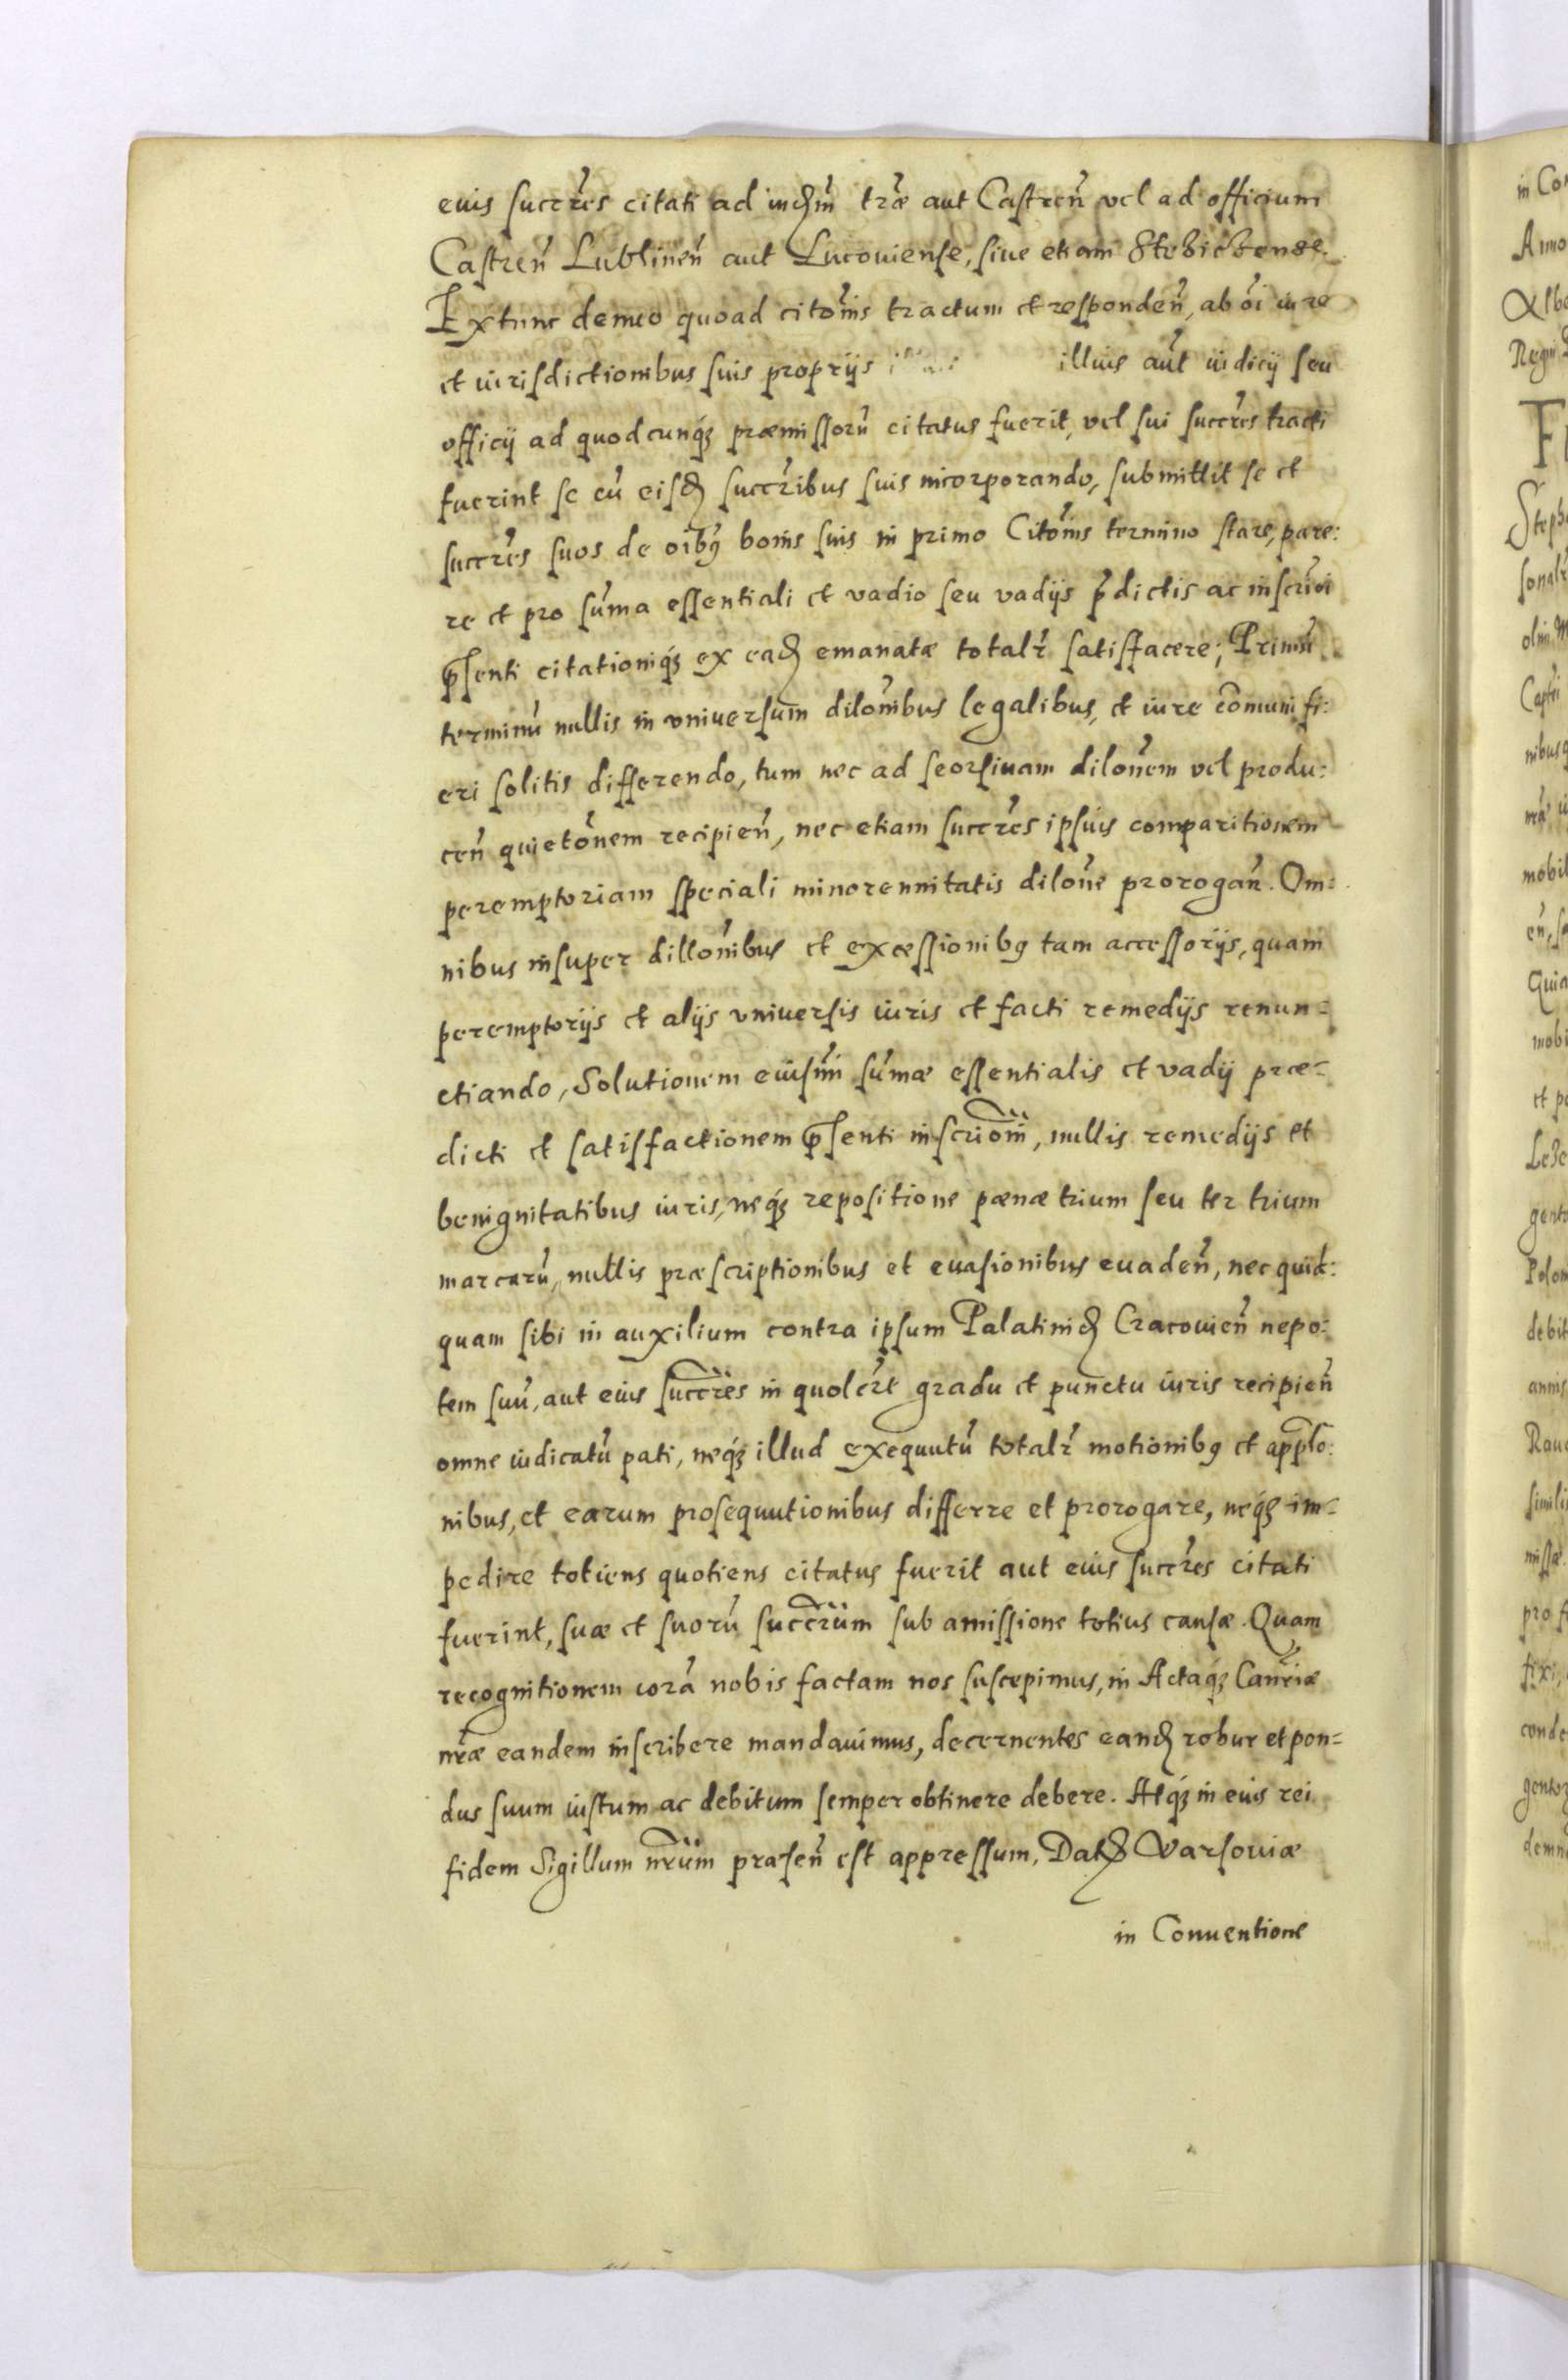 euis succres citati ad iudm træ aut Castren vel ad officium
Castren Lublinen aut Lucouiense, siue etiam Stezicense.
Extunc demeo quoad citonis tractum et responden, ab oi iure
et iurisdictionibus suis proprijs illius aut iudicij seu
officij ad quodcunqꝫ præmissoru citatus fuerit, vel sui succres tracti
fuerint se cu eisd succribus suis incorporando, submittit se et
succres suos de oibꝰ bonis suis in primo Citonis termino stare, pare:
re et pro suma essentiali et vadio seu vadijs pdictis ac inscrioi
pſenti citationiqꝫ ex ead emanatæ totalr satisfacere; Primu
terminu nullis in vniuersum dilonibus legalibus, et iure comuni fi:
eri solitis differendo, tum nec ad seorsiuam dilonem vel produ:
cen quietonem recipien, nec etiam succres ipsius comparitionem
peremptoriam speciali minorennitatis dilone prorogan. Om=
nibus insuper dillonibus et excessionibꝰ tam accessorijs, quam
peremptorijs et alijs vniuersis iuris et facti remedijs renun=
ctiando, Solutionem eiusmi sumæ essentialis et vadij præ=
dicti et satisfactionem pſenti inscrioni, nullis remedijs et
benignitatibus iuris, neqꝫ repositione pænæ trium seu ter trium
marcaru, nullis præscriptionibus et euasionibus euaden, nec quid:
quam sibi in auxilium contra ipsum Palatinid Cracouien nepo:
tem suu, aut eius succres in quolcrt gradu et punctu iuris recipien
omne iudicatu pati, neqꝫ illud exequutu totalr motionibꝰ et applo:
nibus, et earum prosequutionibus differre et prorogare, neqꝫ im=
pedire totiens quotiens citatus fuerit aut eius succres citati
fuerint, suæ et suoru succrum sub amissione totius causæ. Quam
recognitionem cora nobis factam nos suscepimus, in Actaqꝫ Canriæ
nræ eandem inscribere mandauimus, decernentes eand robur et pon=
dus suum iustum ac debitum semper obtinere debere. Atqꝫ in euis rei
fidem Sigillum nrum præsen est appressum, Dat Warsouiæ
in Conuentione